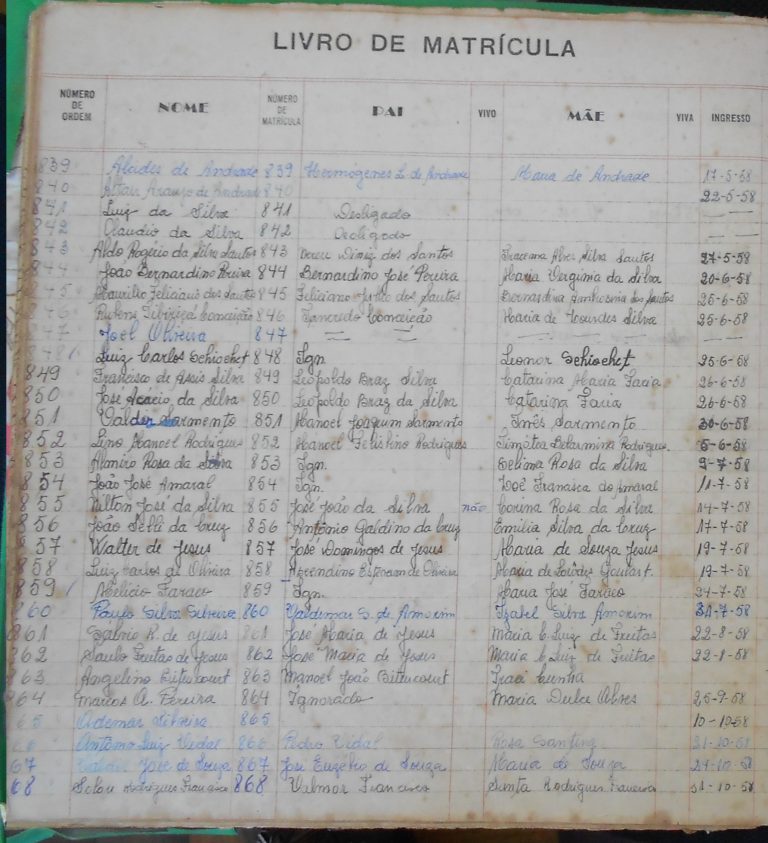 LIVRO DE MATRÍCULA
NÚMERO DE ORDEM NOME NÚMERO DE MATRÍCULA PAI VIVO MÃE VIVA INGRESSO
839 Alcides de Andrade 839 Hermógenes L. de Andrade Maria de Andrade 17-5-58
840 Altair Araujo de Andrade 840 22-5-58
841 Luiz da Silva 841 Desligado
842 Claudio da Silva 842 Desligado
843 Aldo Rogério da Silva Santos 843 Diniz dos Santos Iracema Alves Silva Santos 27-5-58
844 João Bernardino Pereira 844 Bernardino José Pereira Maria Verginia da Silva 20-6-58
845 Feliciano dos Santos 845 Feliciano dos Santos Bernardina dos Santos 25-6-58
846 Rubens Tibiriça Conceição 846 Tancredo Conceição Maria de Lourdes Silva 25-6-58
847 Joel Oliveira 847
848 Luiz Carlos Schiochet 848 Ign. Leonor Schiochet 25-6-58
849 Francisco de Assis Silva 849 Leopoldo Braz Silva Catarina Maria Faria 26-6-58
850 José Acácio da Silva 850 Leopoldo Braz da Silva Catarina Faria 26-6-58
851 Valdir Sarmento 851 Manoel Joaquim Sarmento Inês Sarmento 30-6-58
852 Lino Manoel Rodrigues 852 Manoel Rodrigues Rodrigues 5-6-58
853 Almiro Rosa da Silva 853 Ign. Celima Rosa da Silva 9-7-58
854 João José Amaral 854 Ign. do Amaral 11-7-58
855 Nilton José da Silva 855 José João da Silva não Corina Rosa da Silva 14-7-58
856 João da Cruz 856 Antônio Galdino da Cruz Emilia Silva da Cruz 17-7-58
857 Walter de Jesus 857 José Domingos de Jesus Maria de Souza Jesus 19-7-58
858 Luiz Carlos de Oliveira 858 de Oliveira Maria de Lourdes Goulart. 19-7-58
859 Faraco 859 Ign. Maria José Faraco 21-7-58
860 Paulo Silva Silveira 860 Valdemar S. de Amorim Izabel Silva Amorim 31-7-58
861 R. de Jesus 861 José Maria de Jesus Maria C. Luiz de Freitas 22-8-58
862 Saulo Freitas de Jesus 862 José Maria de Jesus Maria C. Luiz de Freitas 22-8-58
863 Angelino Bitencourt 863 Manoel João Bittencourt Iraci Cunha
864 Marcos A. Pereira 864 Ignorado Maria Dulce Alves 25-9-58
65 Ademar Silveira 865 10-10-58
Antônio Luiz Vidal 866 Pedro Vidal Rosa 21-10-58
67 José de Souza 867 José Eugênio de Souza Maria de Souza 21-10-58
68 Rodrigues Francisco 868 Valmor Francisco Rodrigues 31-10-58